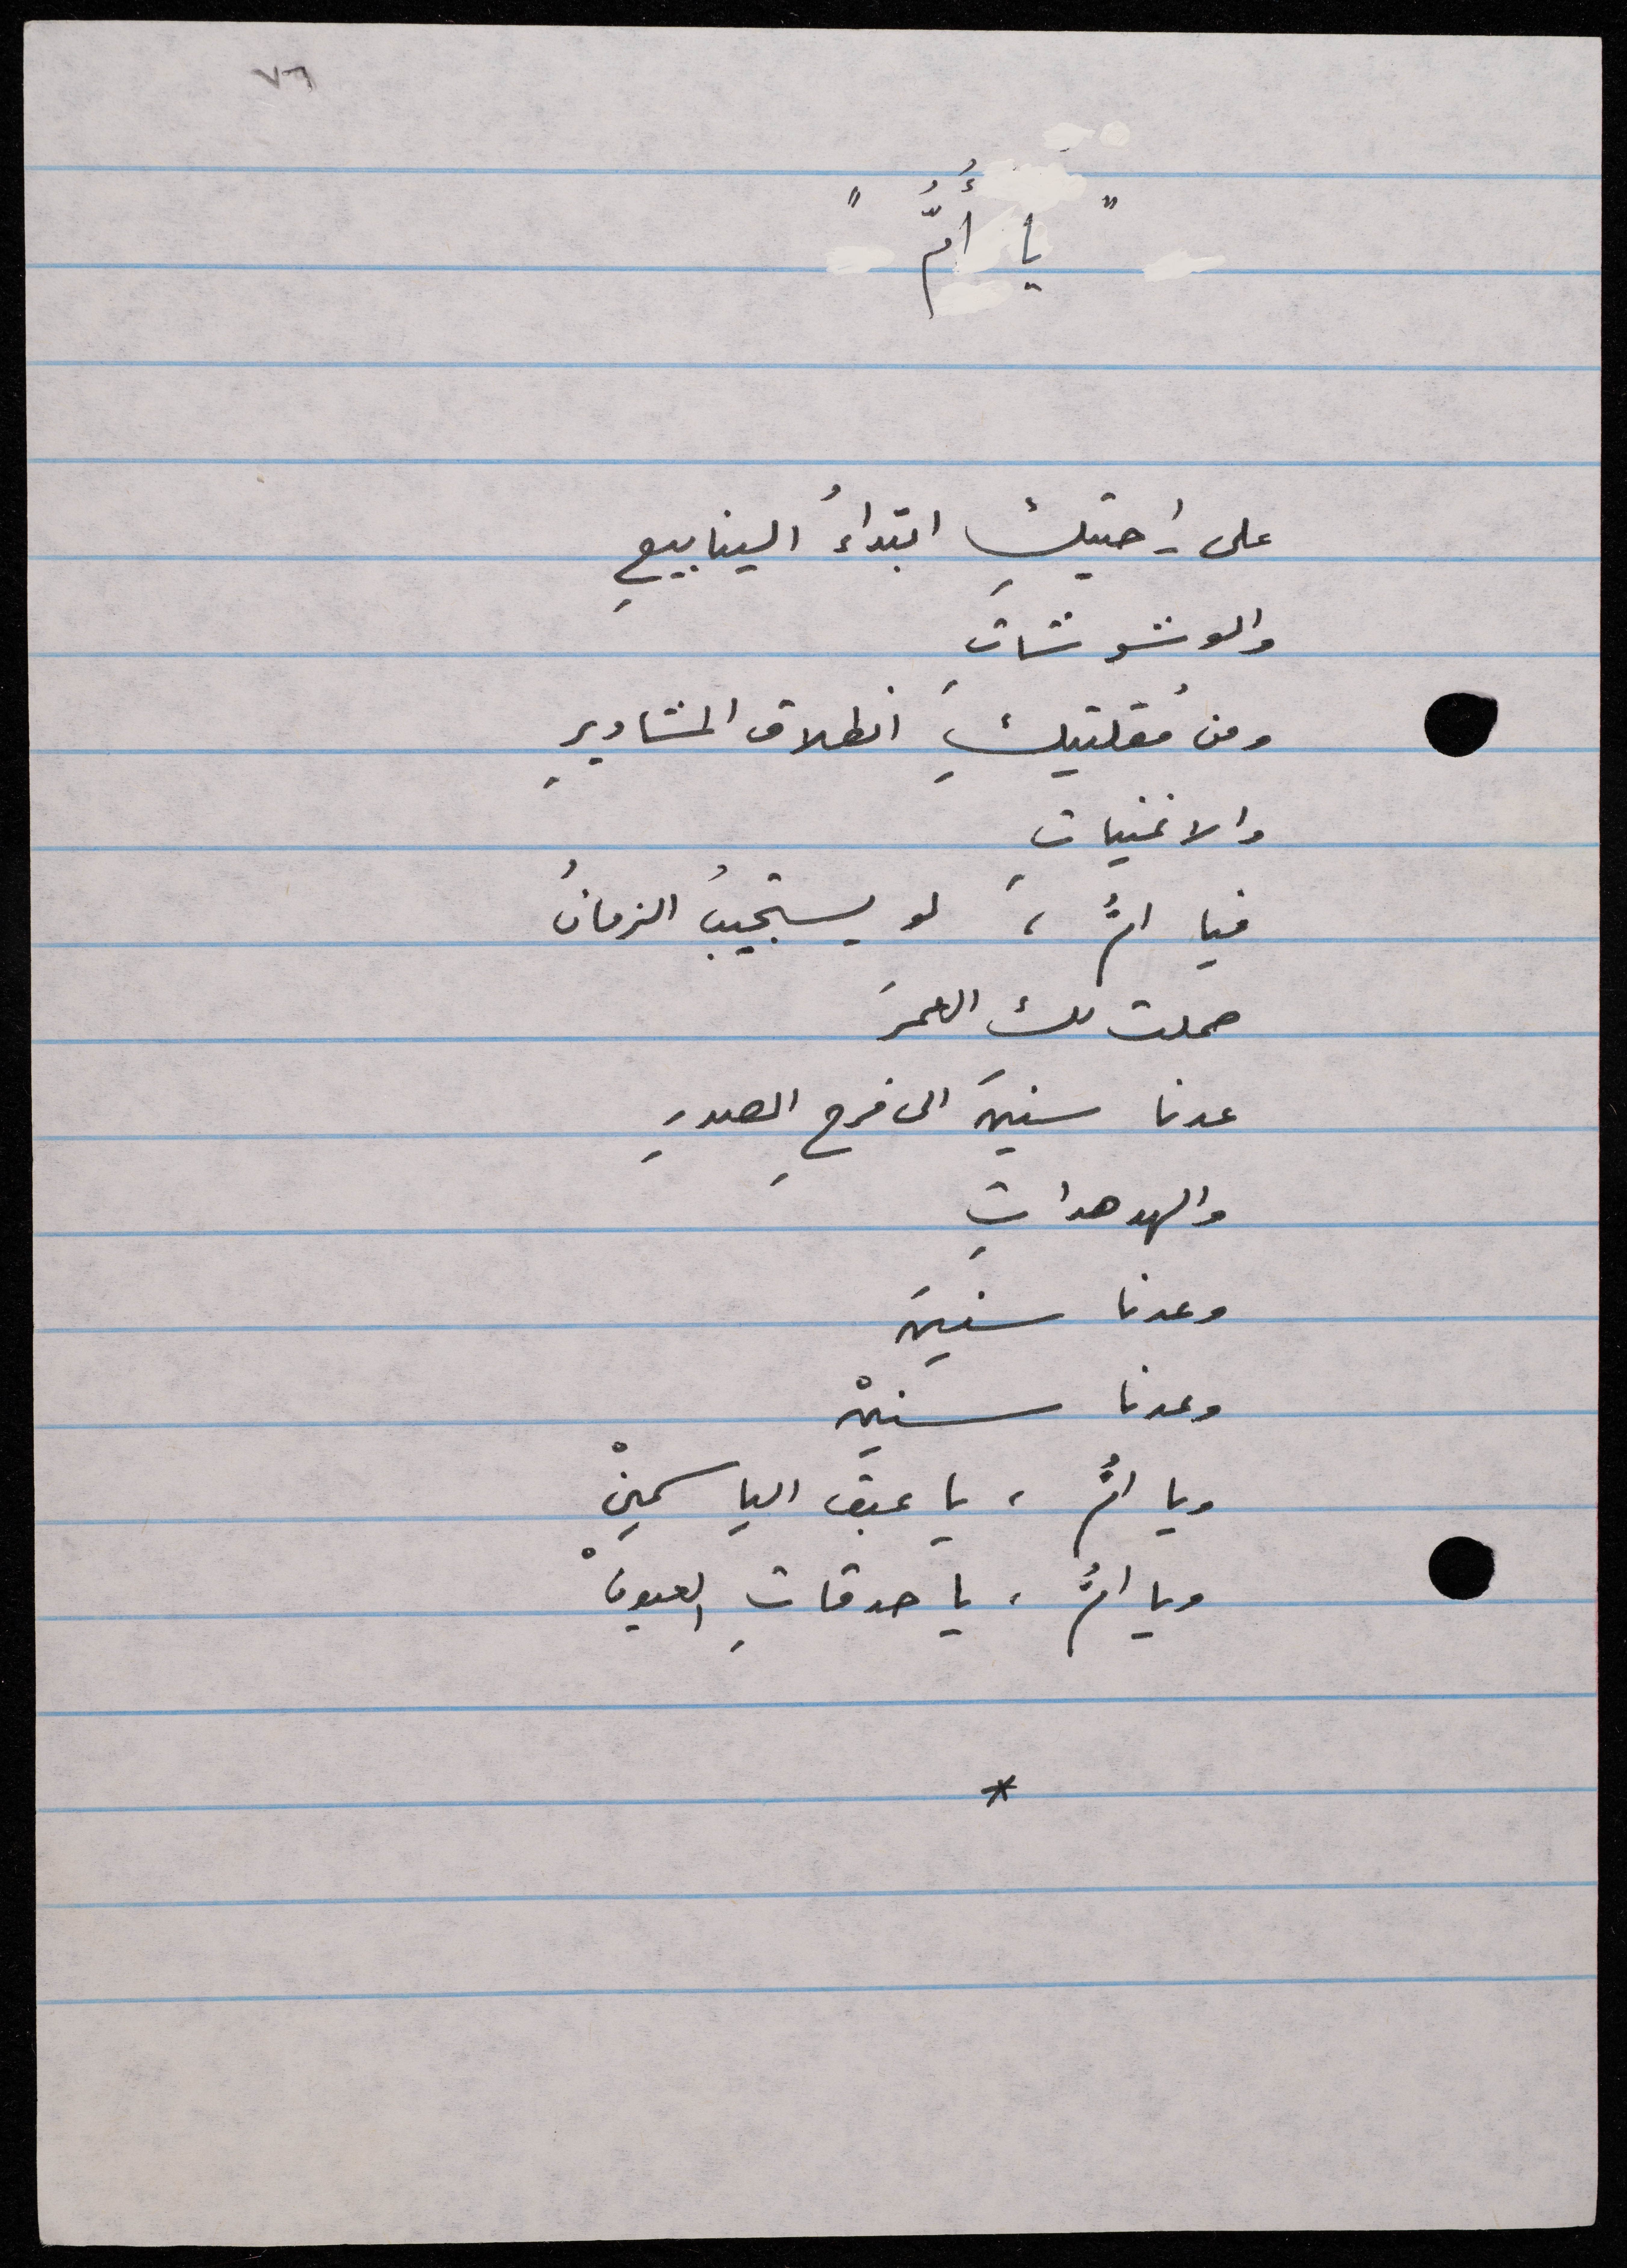 ٧٦
" يا أُمُّ "
على راحتيكِ ابتداءُ الينابيعِ
والوشوشاتِ
ومن مُقلتيكِ انطلاق المشاويرِ
والاغنياتِ
فيا امُّ ، لو يستجيبُ الزمانُ
حملت لك العمرَ
عدنا سنينَ الى فرحِ الصدرِ
والهدهداتِ
وعدنا سنينَ
وعدنا سنينْ
ويا امُّ ، يا عبق الياسمينْ
ويا امُّ ، يا حدقاتِ العيونْ
*